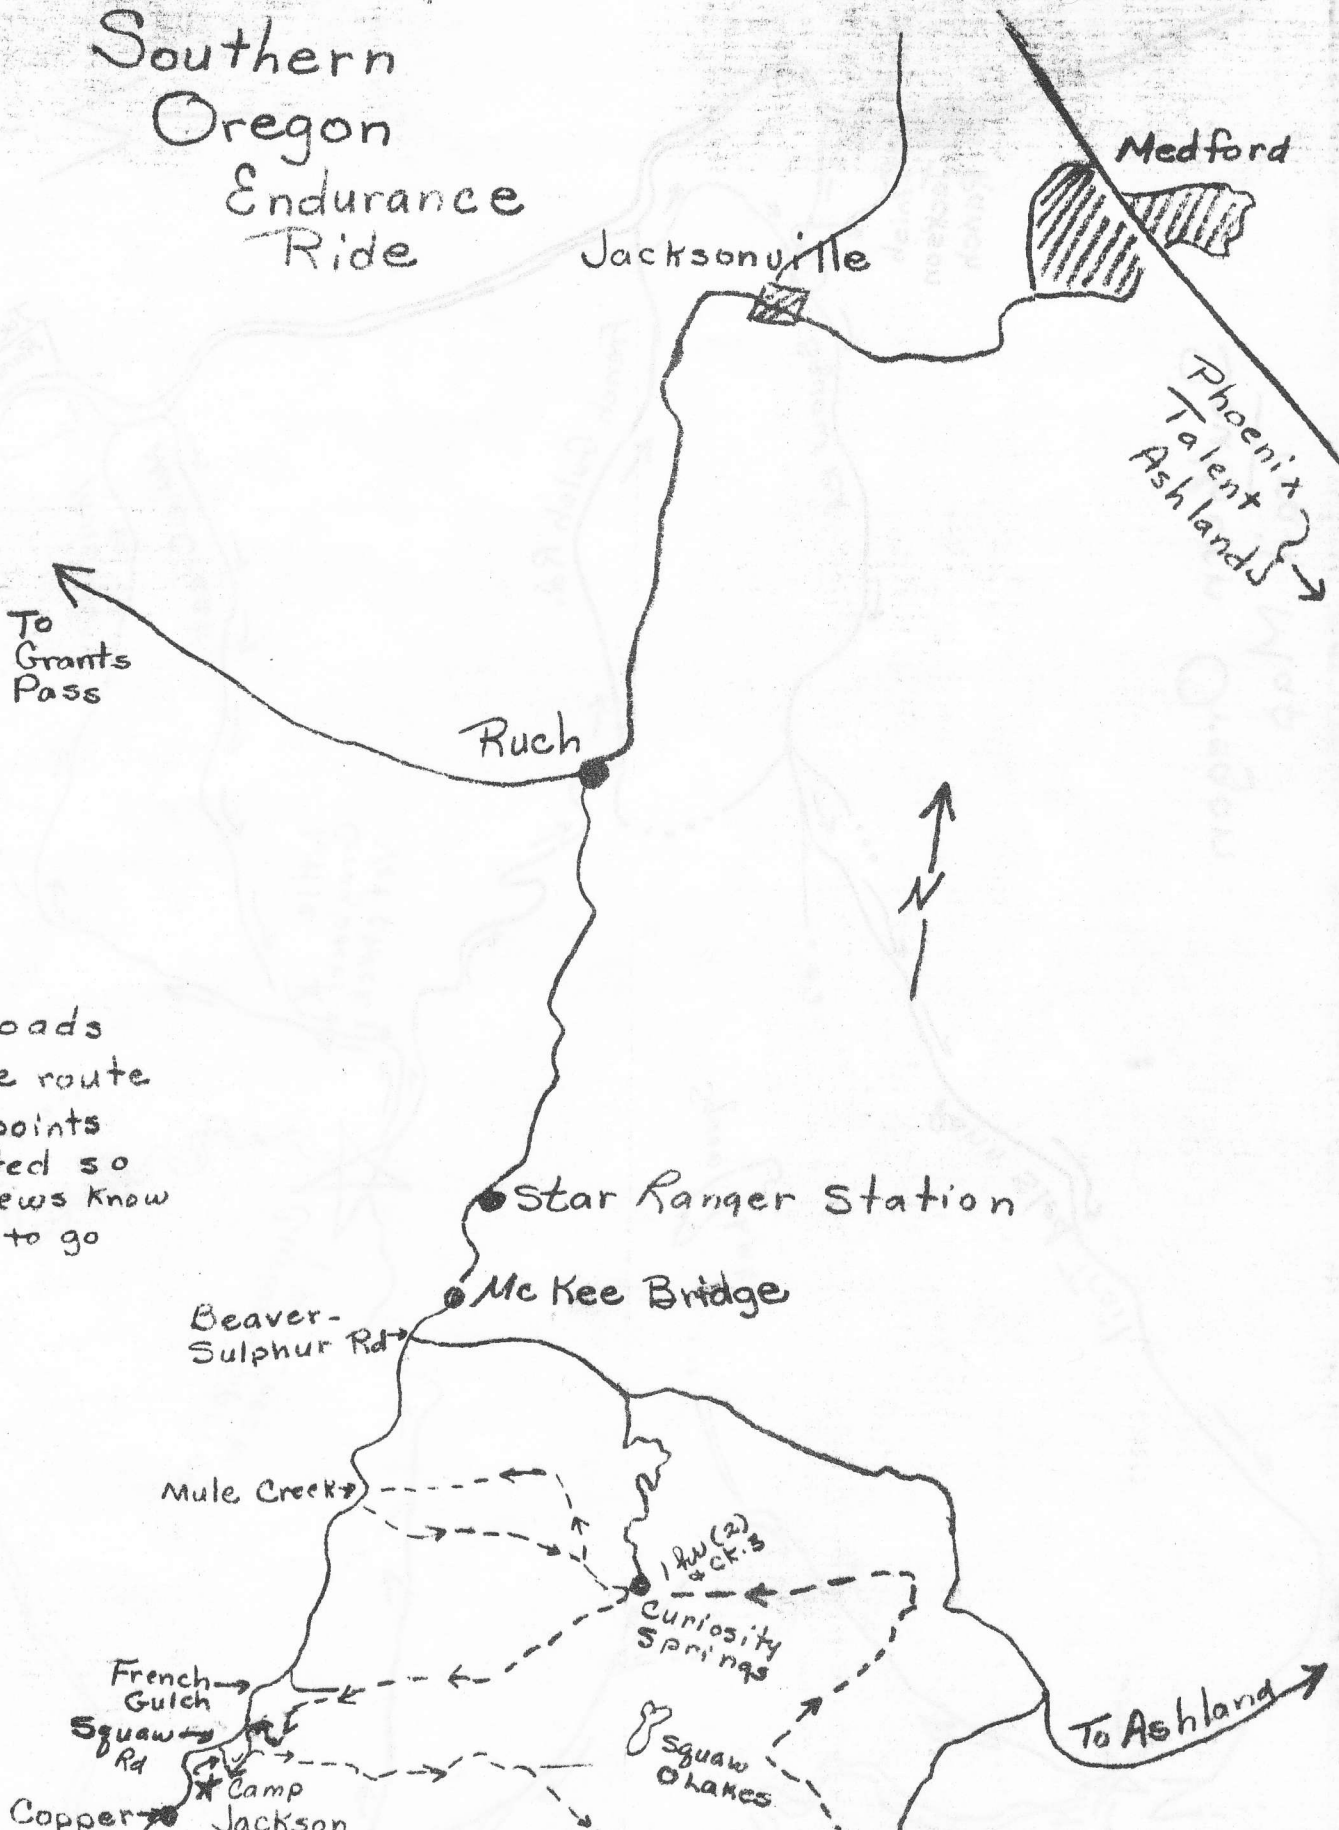 Southern
Oregon
Endurance
Ride
Medford
Jacksonville
Phoenix
Talent
Ashland
To
Grants
Pass
Ruch
N
oads
e route
points
ted so
ews know
to go
Star Ranger Station
McKee Bridge
Beaver-
Sulphur Rd
Mule Creek
(2)
ck.s
Curiosity
Springs
French
Gulch
Squaw
Rd
Squaw
Lakes
To Ashland
Camp
Jackson
Copper